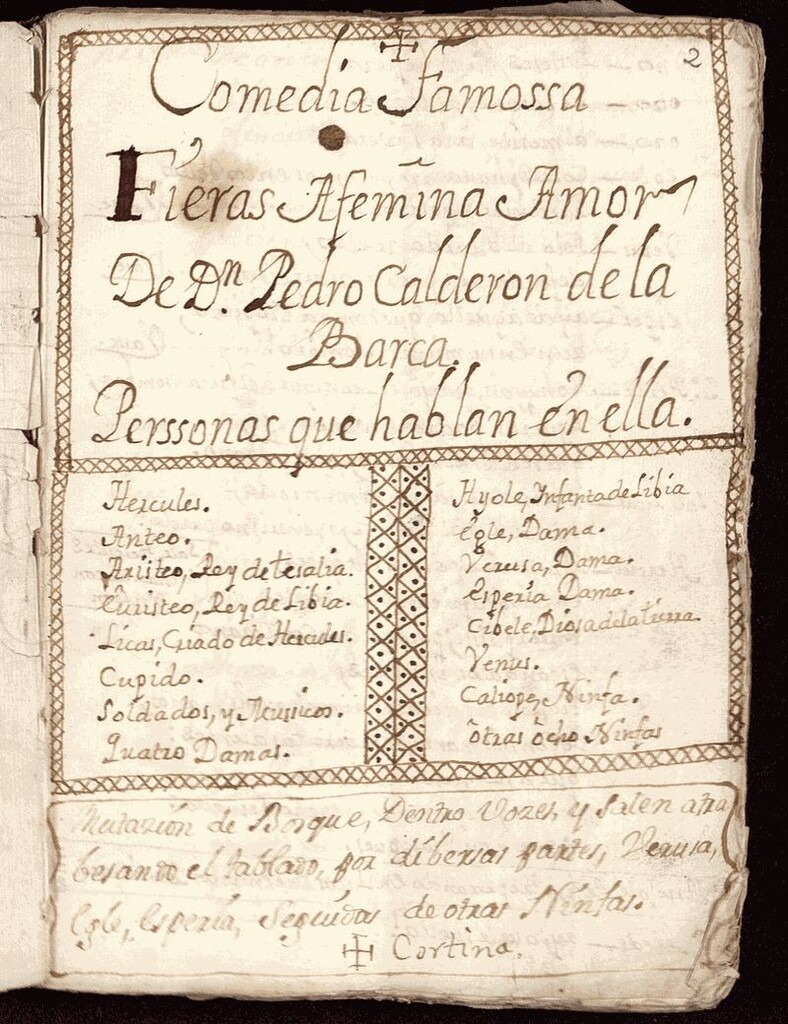 2
Comedia Famossa
Fieras Afemina Amor
De Dn. Pedro Calderon de la
Barca.
Perssonas que hablan en ella.
Hercules.
Anteo.
Aristeo, Rey de tesalia.
Euristeo, Rey de Libia.
Licas, Criado de Hercules.
Cupido.
Soldados, y Mussicos.
Quatro Damas.
Hyole, Infanta de Libia
Egle, Dama.
Verusa, Dama.
Esperia Dama.
Cibele, Diosa de la tierra
Venus.
Caliope, Ninfa.
otras ôcho Ninfas
Mutazión de Bosque, Dentro Vozes, y salen atra
besando el tablado, por dibersas partes, Verusa,
Egle, Esperia, Seguidas de otras Ninfas.
Cortina.